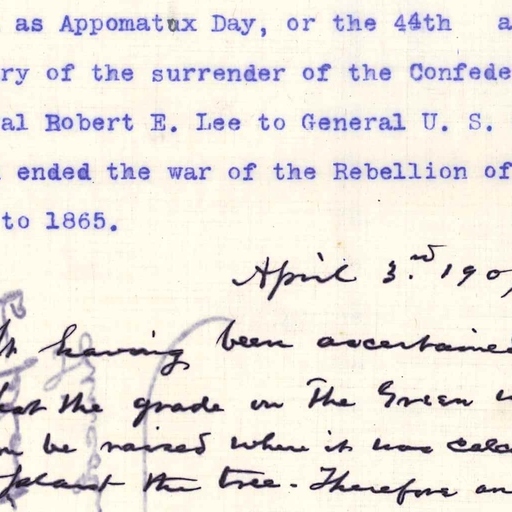 as Appomatux Day, or the 44th a
ry of the surrender of the Confede
al Robert E. Lee to General U. S.
ended the war of the Rebellion of
to 1865.
April 3.rd 190
It having been ascertained
that the grade on The Green
be raised where it was
plant the tree. Therefore an